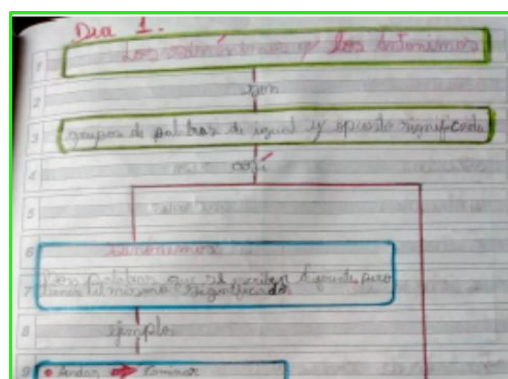 Dia 1.
Los sinónimos y los Antonimos
son
grupos de palabras de igual y opuesto significado
así
sinónimos
Son Palabras que se escriben diferente, pero
tienen el mismo significado
ejemplo:
Andar ➡ Caminar
1
2
3
4
5
6
7
8
9